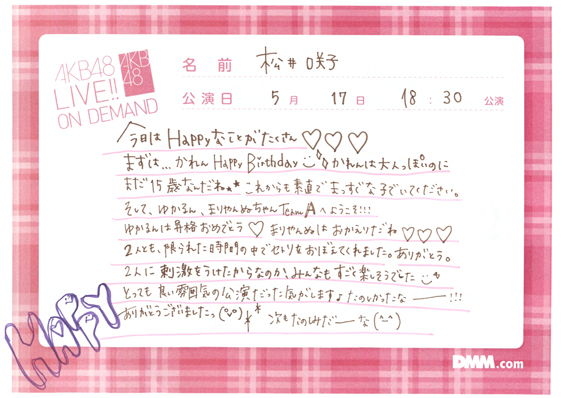 AKB48
LIVE!!
ON DEMAND
AKB
48
名前 松井咲子
公演日 5月 17日 18:30 公演
今日はHappyなことがたくさん♡♡♡
まずは…かれんHappy Birthday かれんは大人っぽいのに
まだ15歳なんだね★★ これからも素直でまっすぐな子でいてください。
そして、ゆかるん、まりやんぬちゃんTeam Aへようこそ!!!
ゆかるんは昇格おめでとう♡ まりやんぬはおかえりだね♡♡
2人とも、限られた時間の中でセトリをおぼえてくれました。ありがとう。
2人に刺激をうけたからなのか、みんなもすごく楽しそうでした
とっても良い雰囲気の公演だった気がします♪たのしかったなー!!!
ありがとうございましたっ 次もたのしみだーな(^-^)
HAPPY
DMM.com